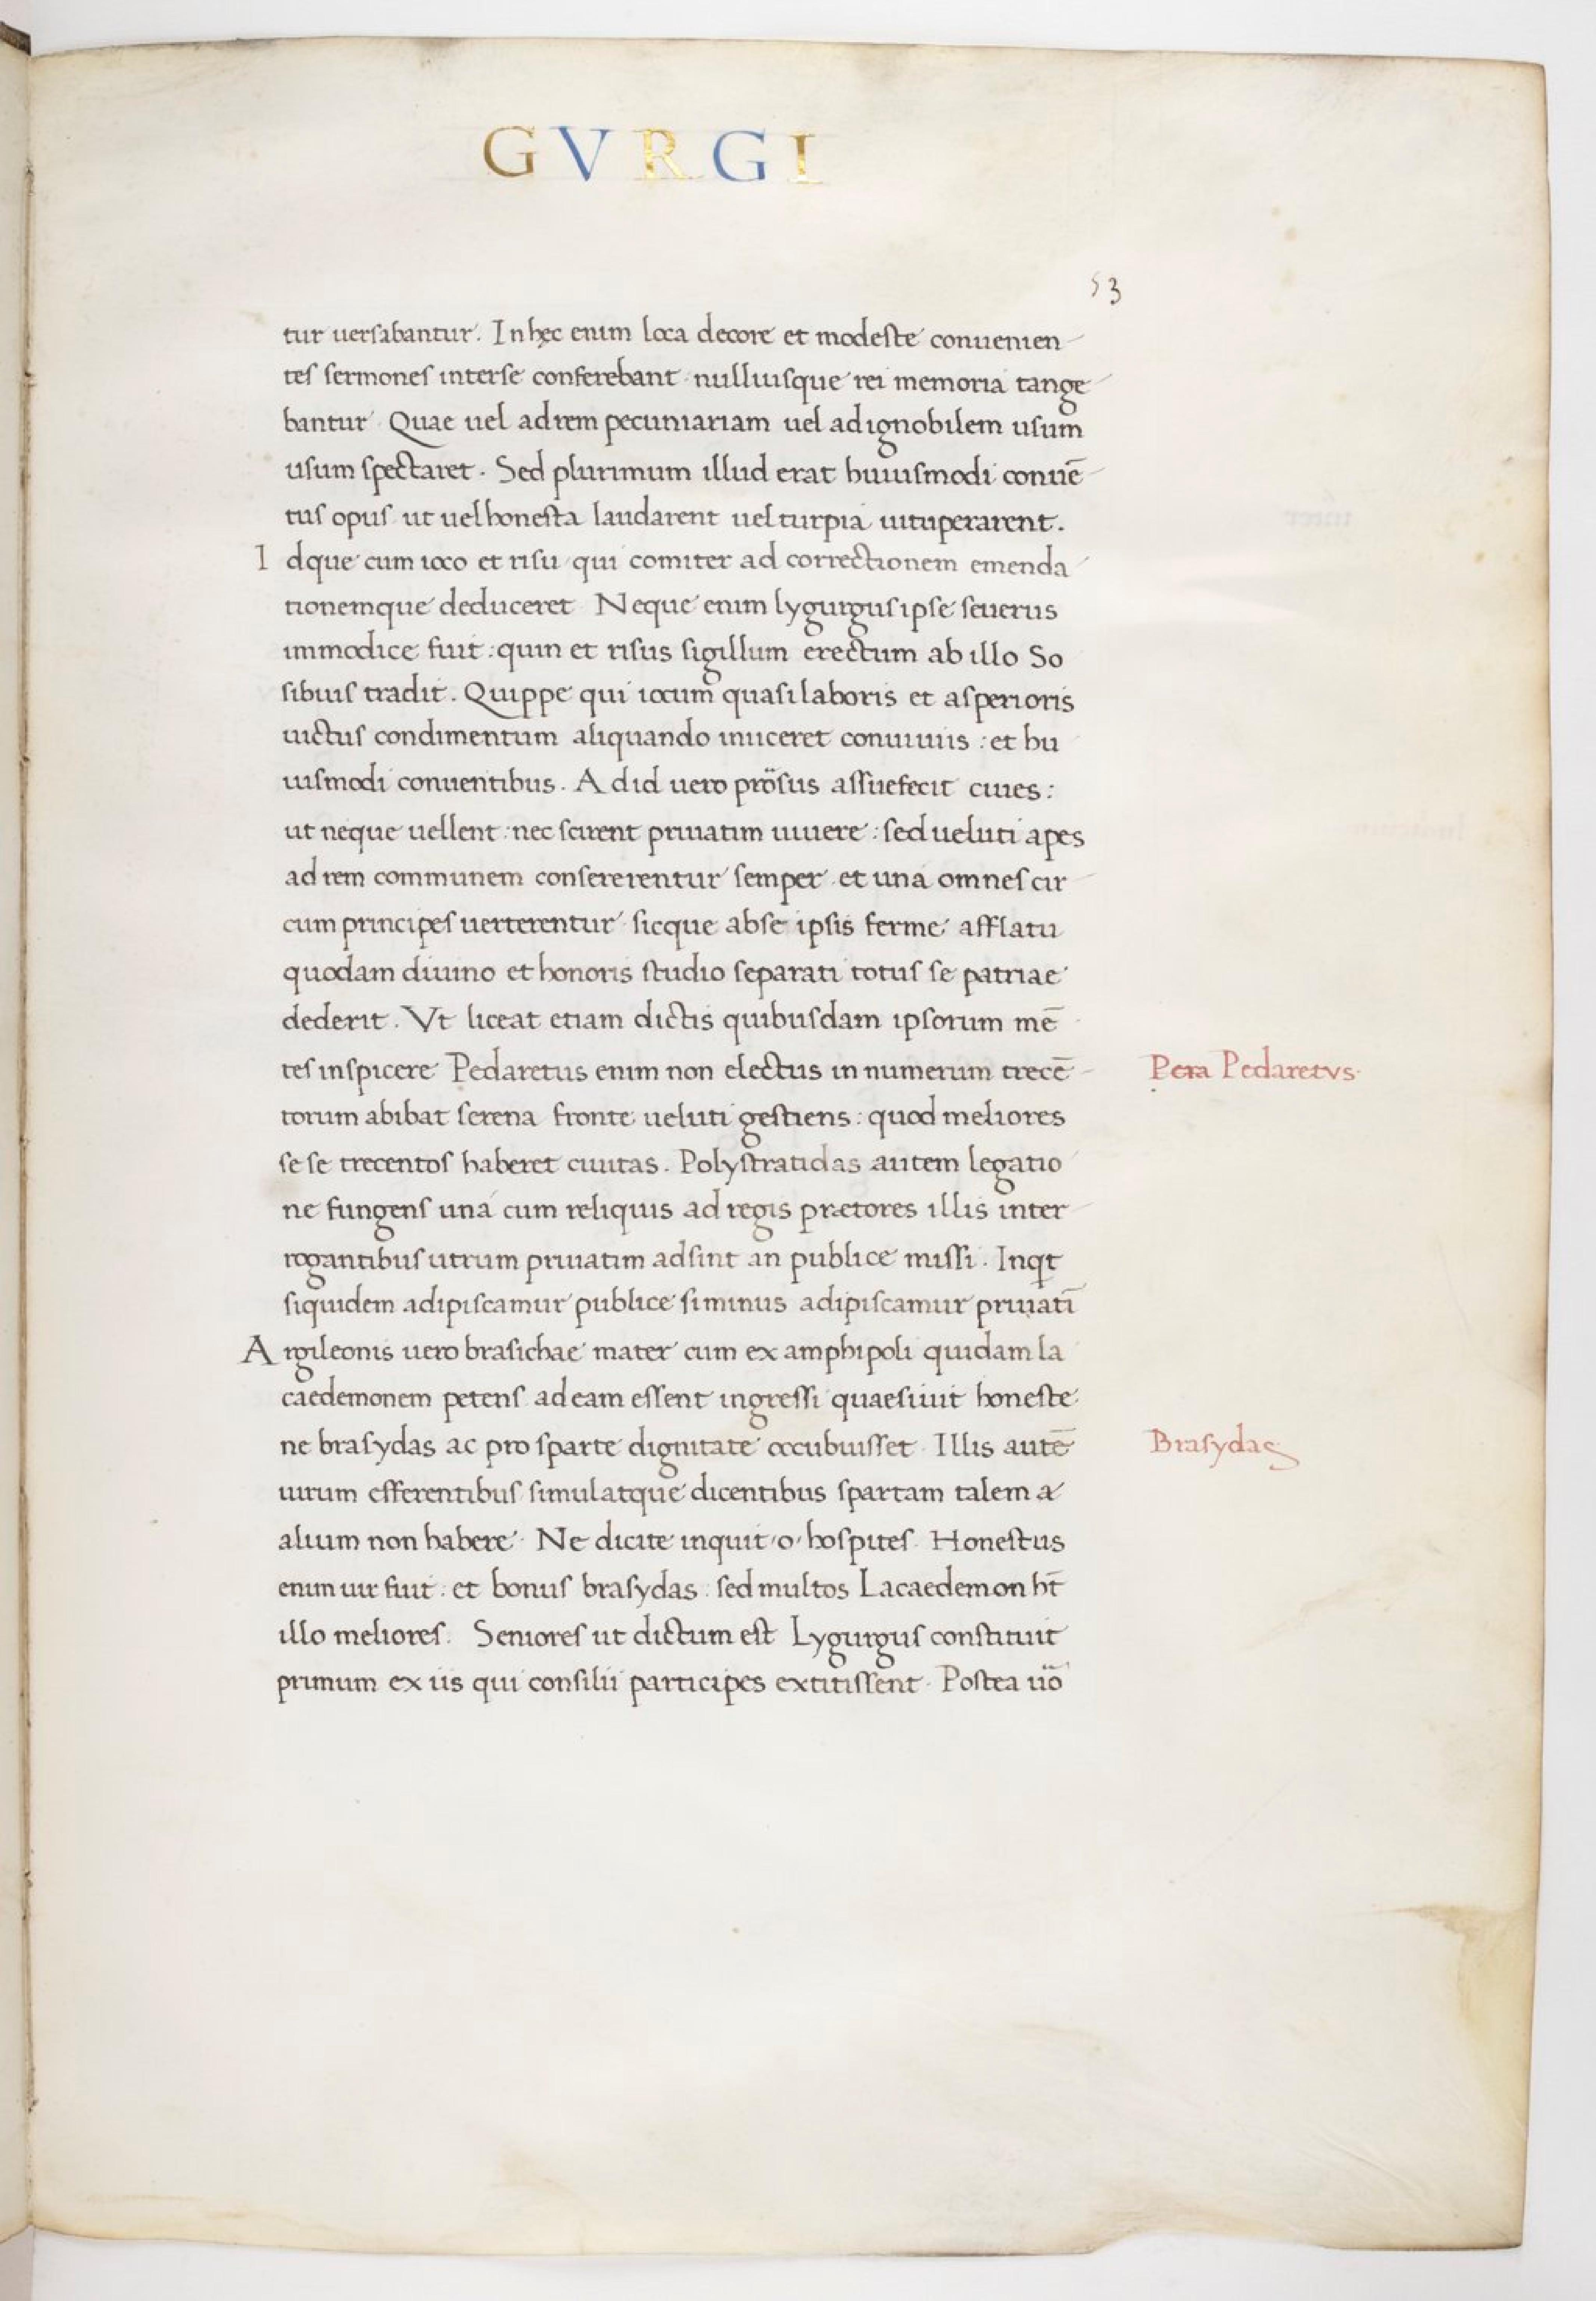 GVRGI
53
tur uersabantur. In hęc enim loca decore et modeste conuenien
tes sermones inter se conferebant nulliusque rei memoria tange
bantur Quae uel ad rem pecuniariam uel ad ignobilem usum
usum spectaret. Sed plurimum illud erat huiusmodi conuē
tus opus ut uel honesta laudarent uel turpia uituperarent.
Idque cum ioco et risu qui comiter ad correctionem emenda
tionemque deduceret Neque enim lygurgus ipse seuerus
immodice fuit: quin et risus sigillum erectum ab illo So
sibius tradit. Quippe qui iocum quasi laboris et asperioris
uictus condimentum aliquando iniiceret conuiuiis: et hu
iusmodi conuentibus. Ad id uero prosus assuefecit ciues:
ut neque uellent: nec scirent priuatim uiuere: sed ueluti apes
ad rem communem consererentur semper et una omnes cir
cum principes uerterentur sicque ab se ipsis ferme afflatu
quodam diuino et honoris studio separati totus se patriae
dederit. Vt liceat etiam dictis quibusdam ipsorum mē
tes inspicere Pedaretus enim non electus in numerum trecē
Pera Pedaretvs.
torum abibat serena fronte ueluti gestiens: quod meliores
se se trecentos haberet ciuitas. Polystratidas autem legatio
ne fungens una cum reliquis ad regis prætores illis inter
rogantibus utrum priuatim adsint an publice missi. Inqt
siquidem adipiscamur publice si minus adipiscamur priuatī
Argileonis uero brasichae mater cum ex amphipoli quidam la
caedemonem petens ad eam essent ingressi quaesiuit honeste
ne brasydas ac pro sparte dignitate occubuisset. Illis autē
Brasydas
uirum efferentibus simulatque dicentibus spartam talem a
alium non habere. Ne dicite inquit o hospites. Honestus
enim uir fuit: et bonus brasydas: sed multos Lacaedemon ht̄
illo meliores. Seniores ut dictum est Lygurgus constituit
primum ex iis qui consilii participes extitissent. Postea uo